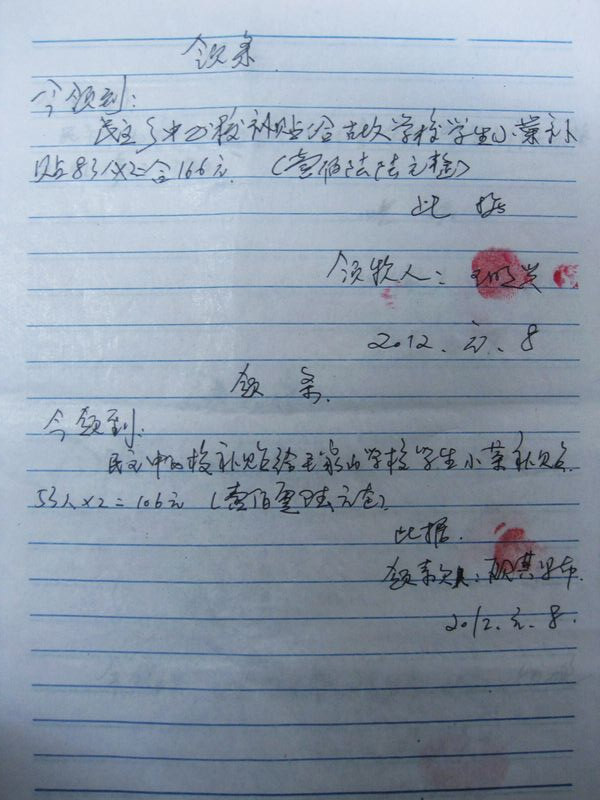 领条
今领到:
民主乡中心校补贴给古坟学校学生小菜补
贴83人×2=合166元. (壹佰陆陆元整)
此据
领款人:
2012.元.8
领条.
今领到:
民主中心校补贴给毛家山学校学生小菜补贴.
53人×2=106元 (壹佰零陆元整).
此据.
领款人:
2012.元.8.